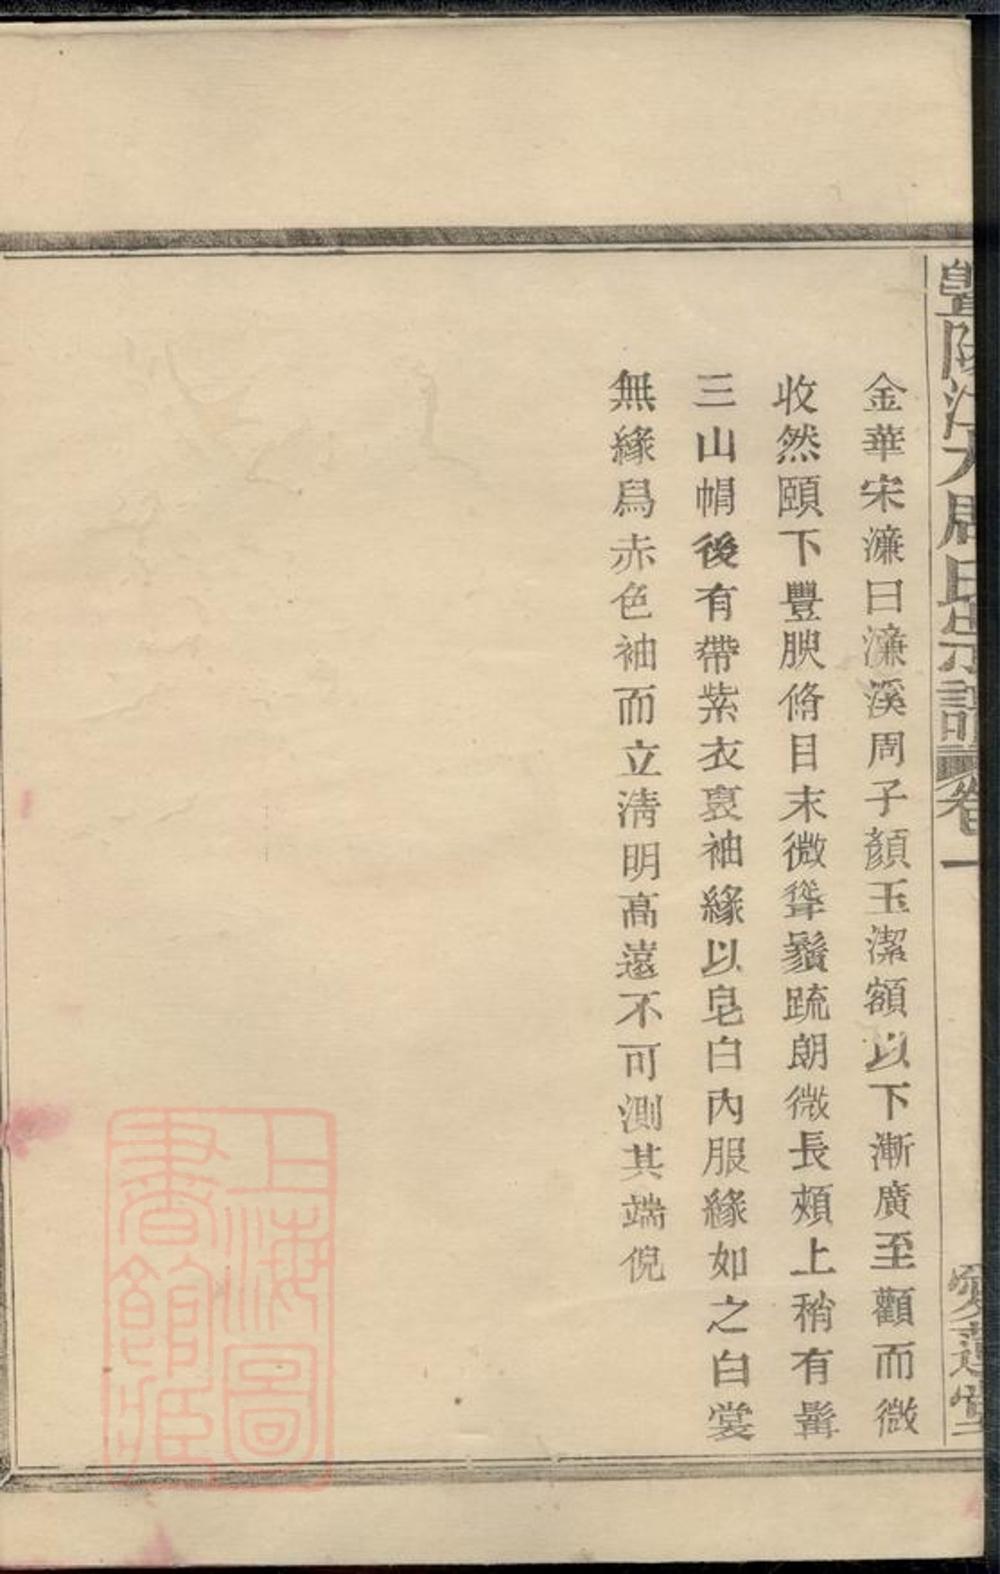 暨陽江周氏宗譜卷一
愛蓮堂
金華宋濂曰濂溪周子顏玉潔額以下漸廣至顴而微
收然頤下豐腴脩目末微聳鬚疏朗微長頰上稍有髯
三山帽後有帶紫衣褒袖緣以皂白內服緣如之白裳
無緣舄赤色袖而立清明高遠不可測其端倪
上海圖
書館藏